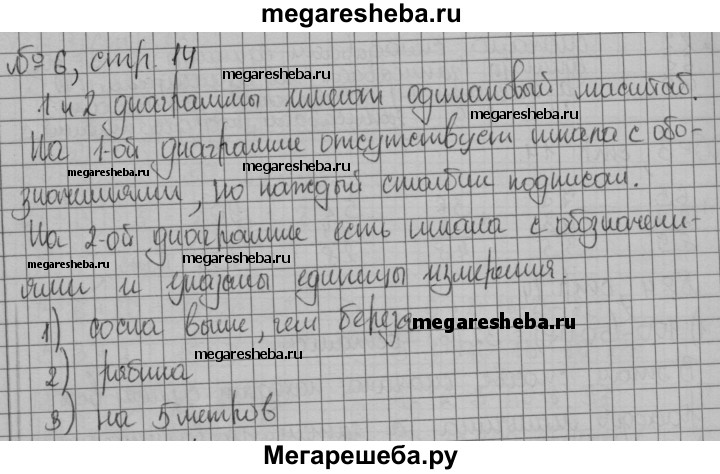 megaresheba.ru
№ 6, стр. 14
megaresheba.ru
1 и 2 диаграммы имеют одинаковый масштаб.
megaresheba.ru
На 1-ой диаграмме отсутствует шкала с обо-
megaresheba.ru
megaresheba.ru
значениями, но каждый столбик подписан.
megaresheba.ru
На 2-ой диаграмме есть шкала с обозначени-
megaresheba.ru
megaresheba.ru
ями и указаны единицы измерения.
1) сосна выше, чем береза
megaresheba.ru
megaresheba.ru
2) рябина
3) на 5 метров
Мегарешеба.ру